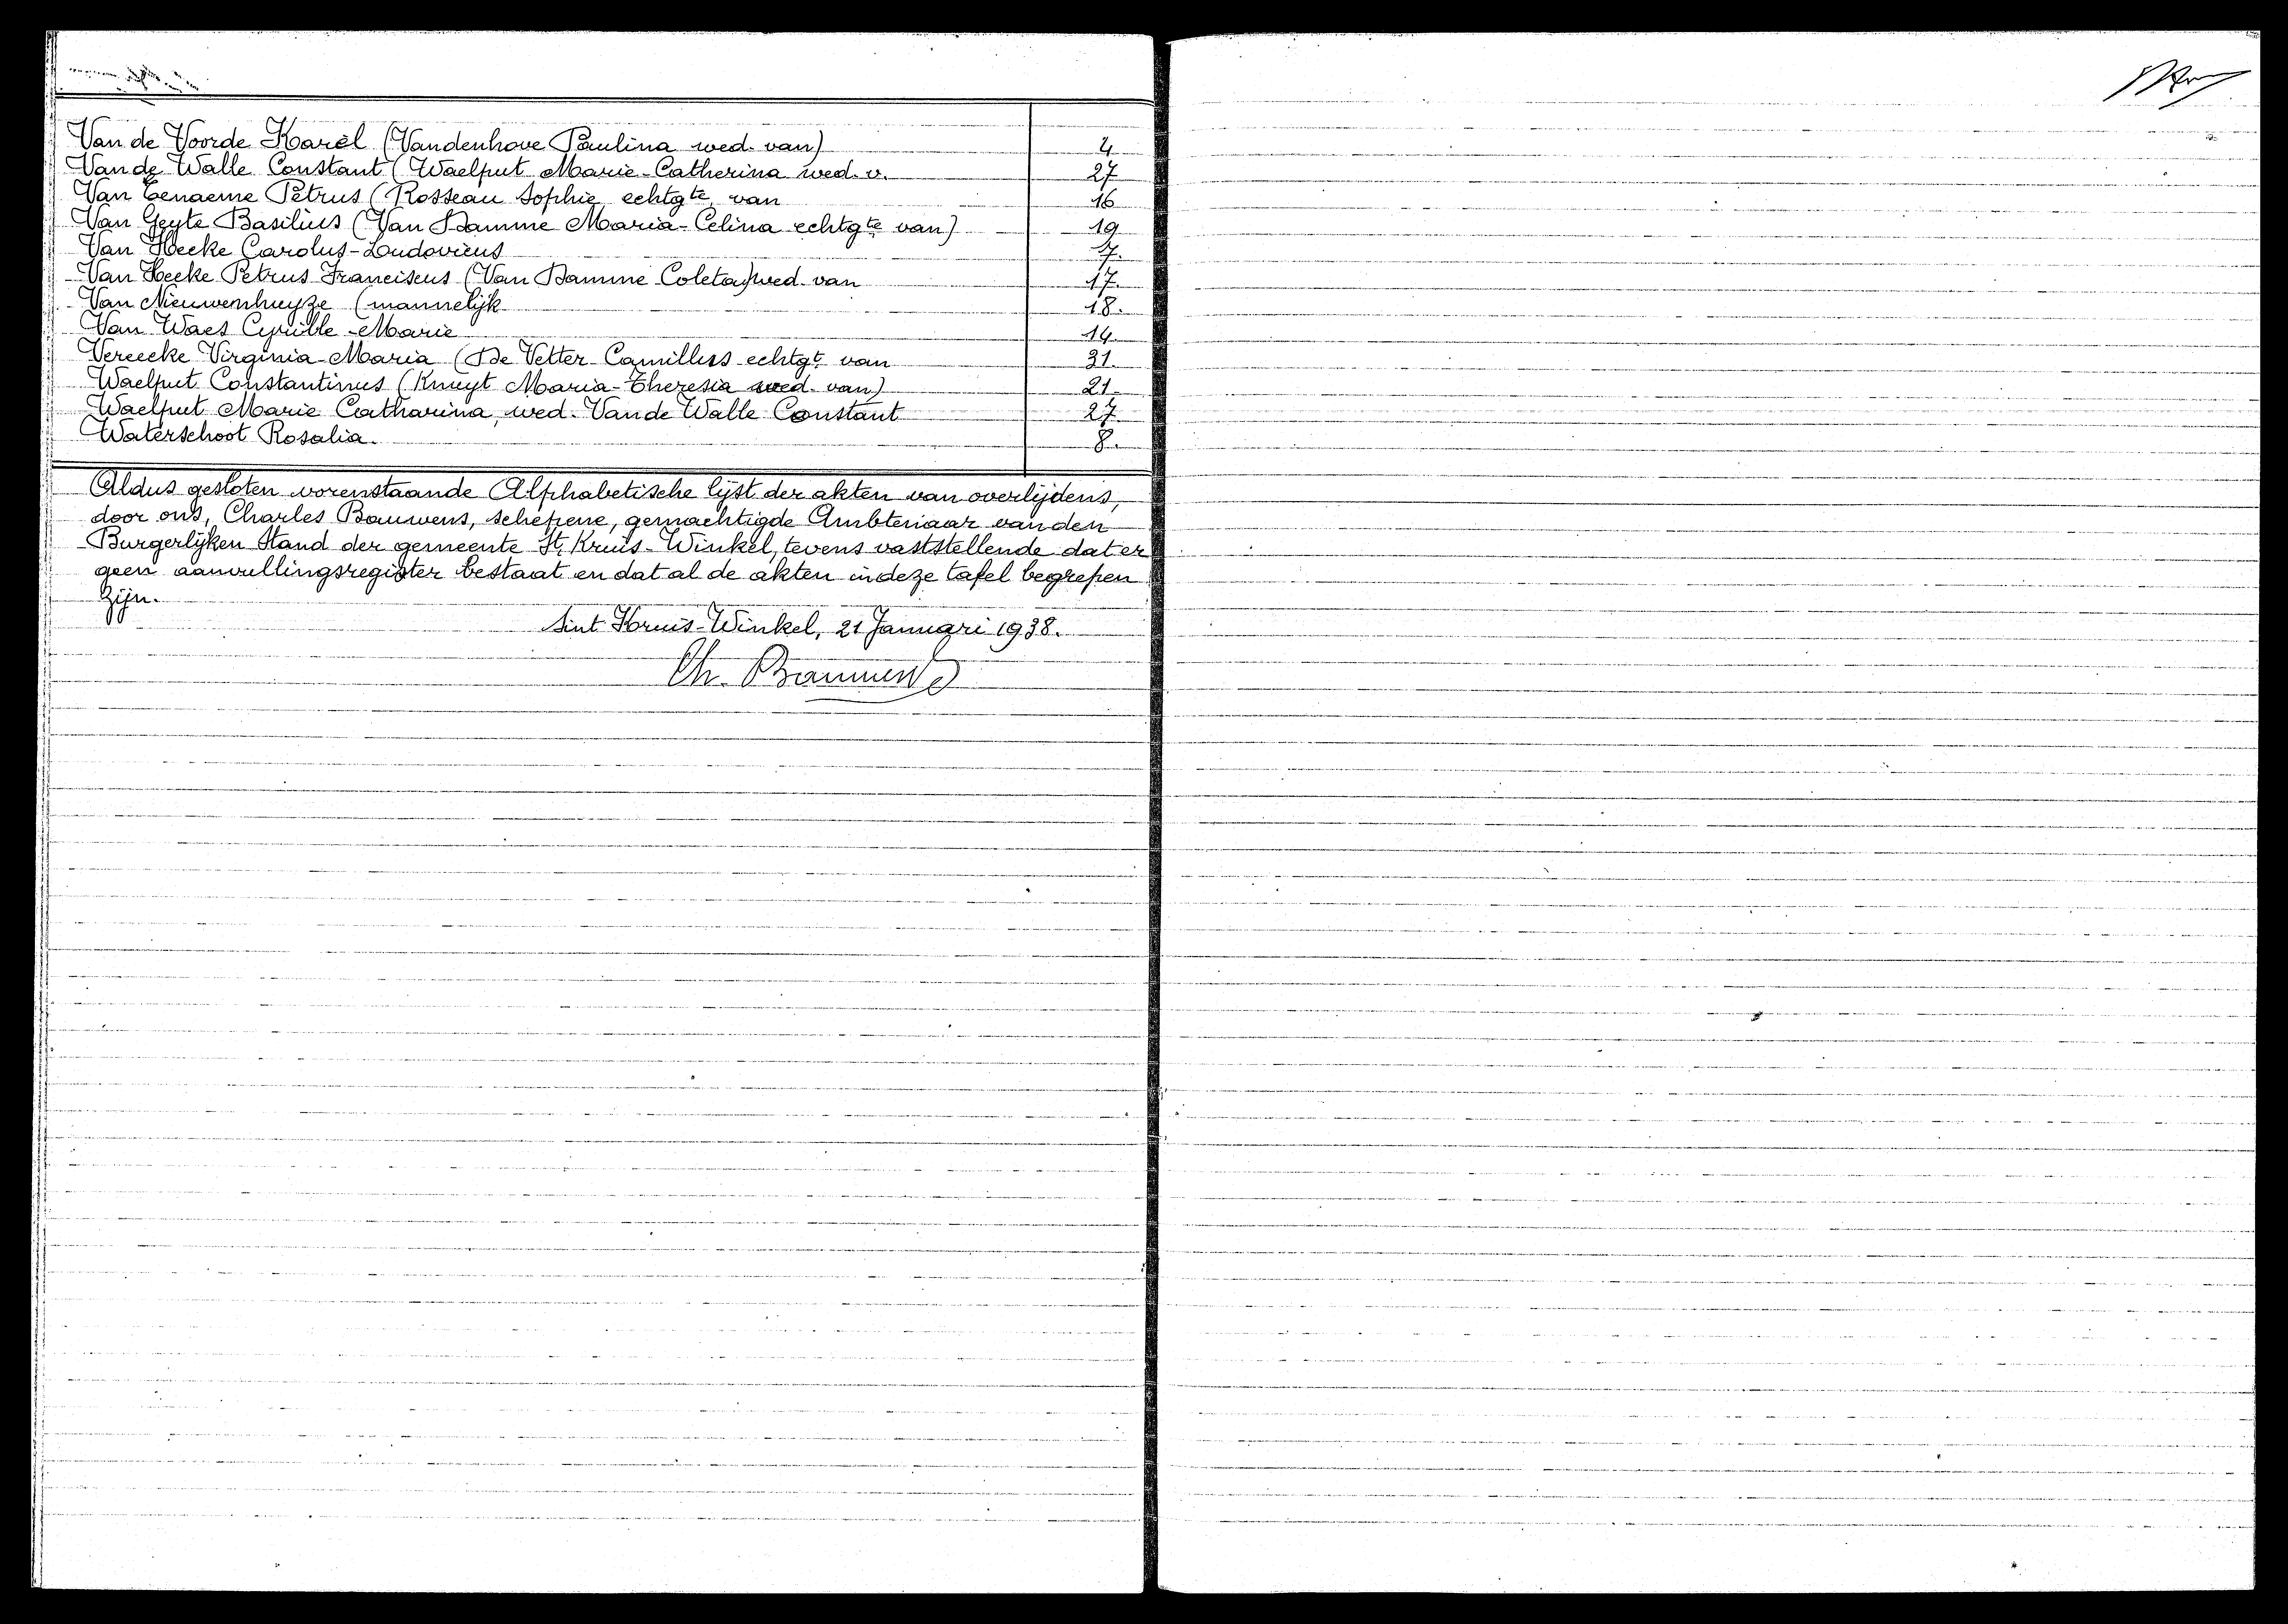 Van de Voorde Karel (Vandenhove Paulina wed. van) 4
Van de Walle Constant (Waelput Marie-Catherina wed. v. 27
Van Eenaeme Petrus (Rosseau Sophie echtgte van 16
Van Geyte Basilius (Van Damme Maria-Celina echtgte van) 19
Van Hecke Carolus-Ludovicus 7.
Van Hecke Petrus Franciscus (Van Damme Coleta) wed. van 17.
Van Nieuwenhuyze (mannelijk 18.
Van Waes Cyrille-Marie 14.
Vereecke Virginia-Maria (De Vetter Camillus echtgt. van 31.
Waelput Constantinus (Knuyt Maria-Theresia wed. van) 21.
Waelput Marie Catharina, wed. Van de Walle Constant 27.
Waterschoot Rosalia. 8.
Aldus gesloten vorenstaande Alphabetische lijst der akten van overlijdens,
door ons, Charles Bauwens, schepene, gemachtigde Ambtenaar van den
Burgerlijken Stand der gemeente St. Kruis-Winkel, tevens vaststellende dat er
geen aanvullingsregister bestaat en dat al de akten in deze tafel begrepen
zijn.
Sint Kruis-Winkel, 21 Januari 1938.
Ch. Bauwens